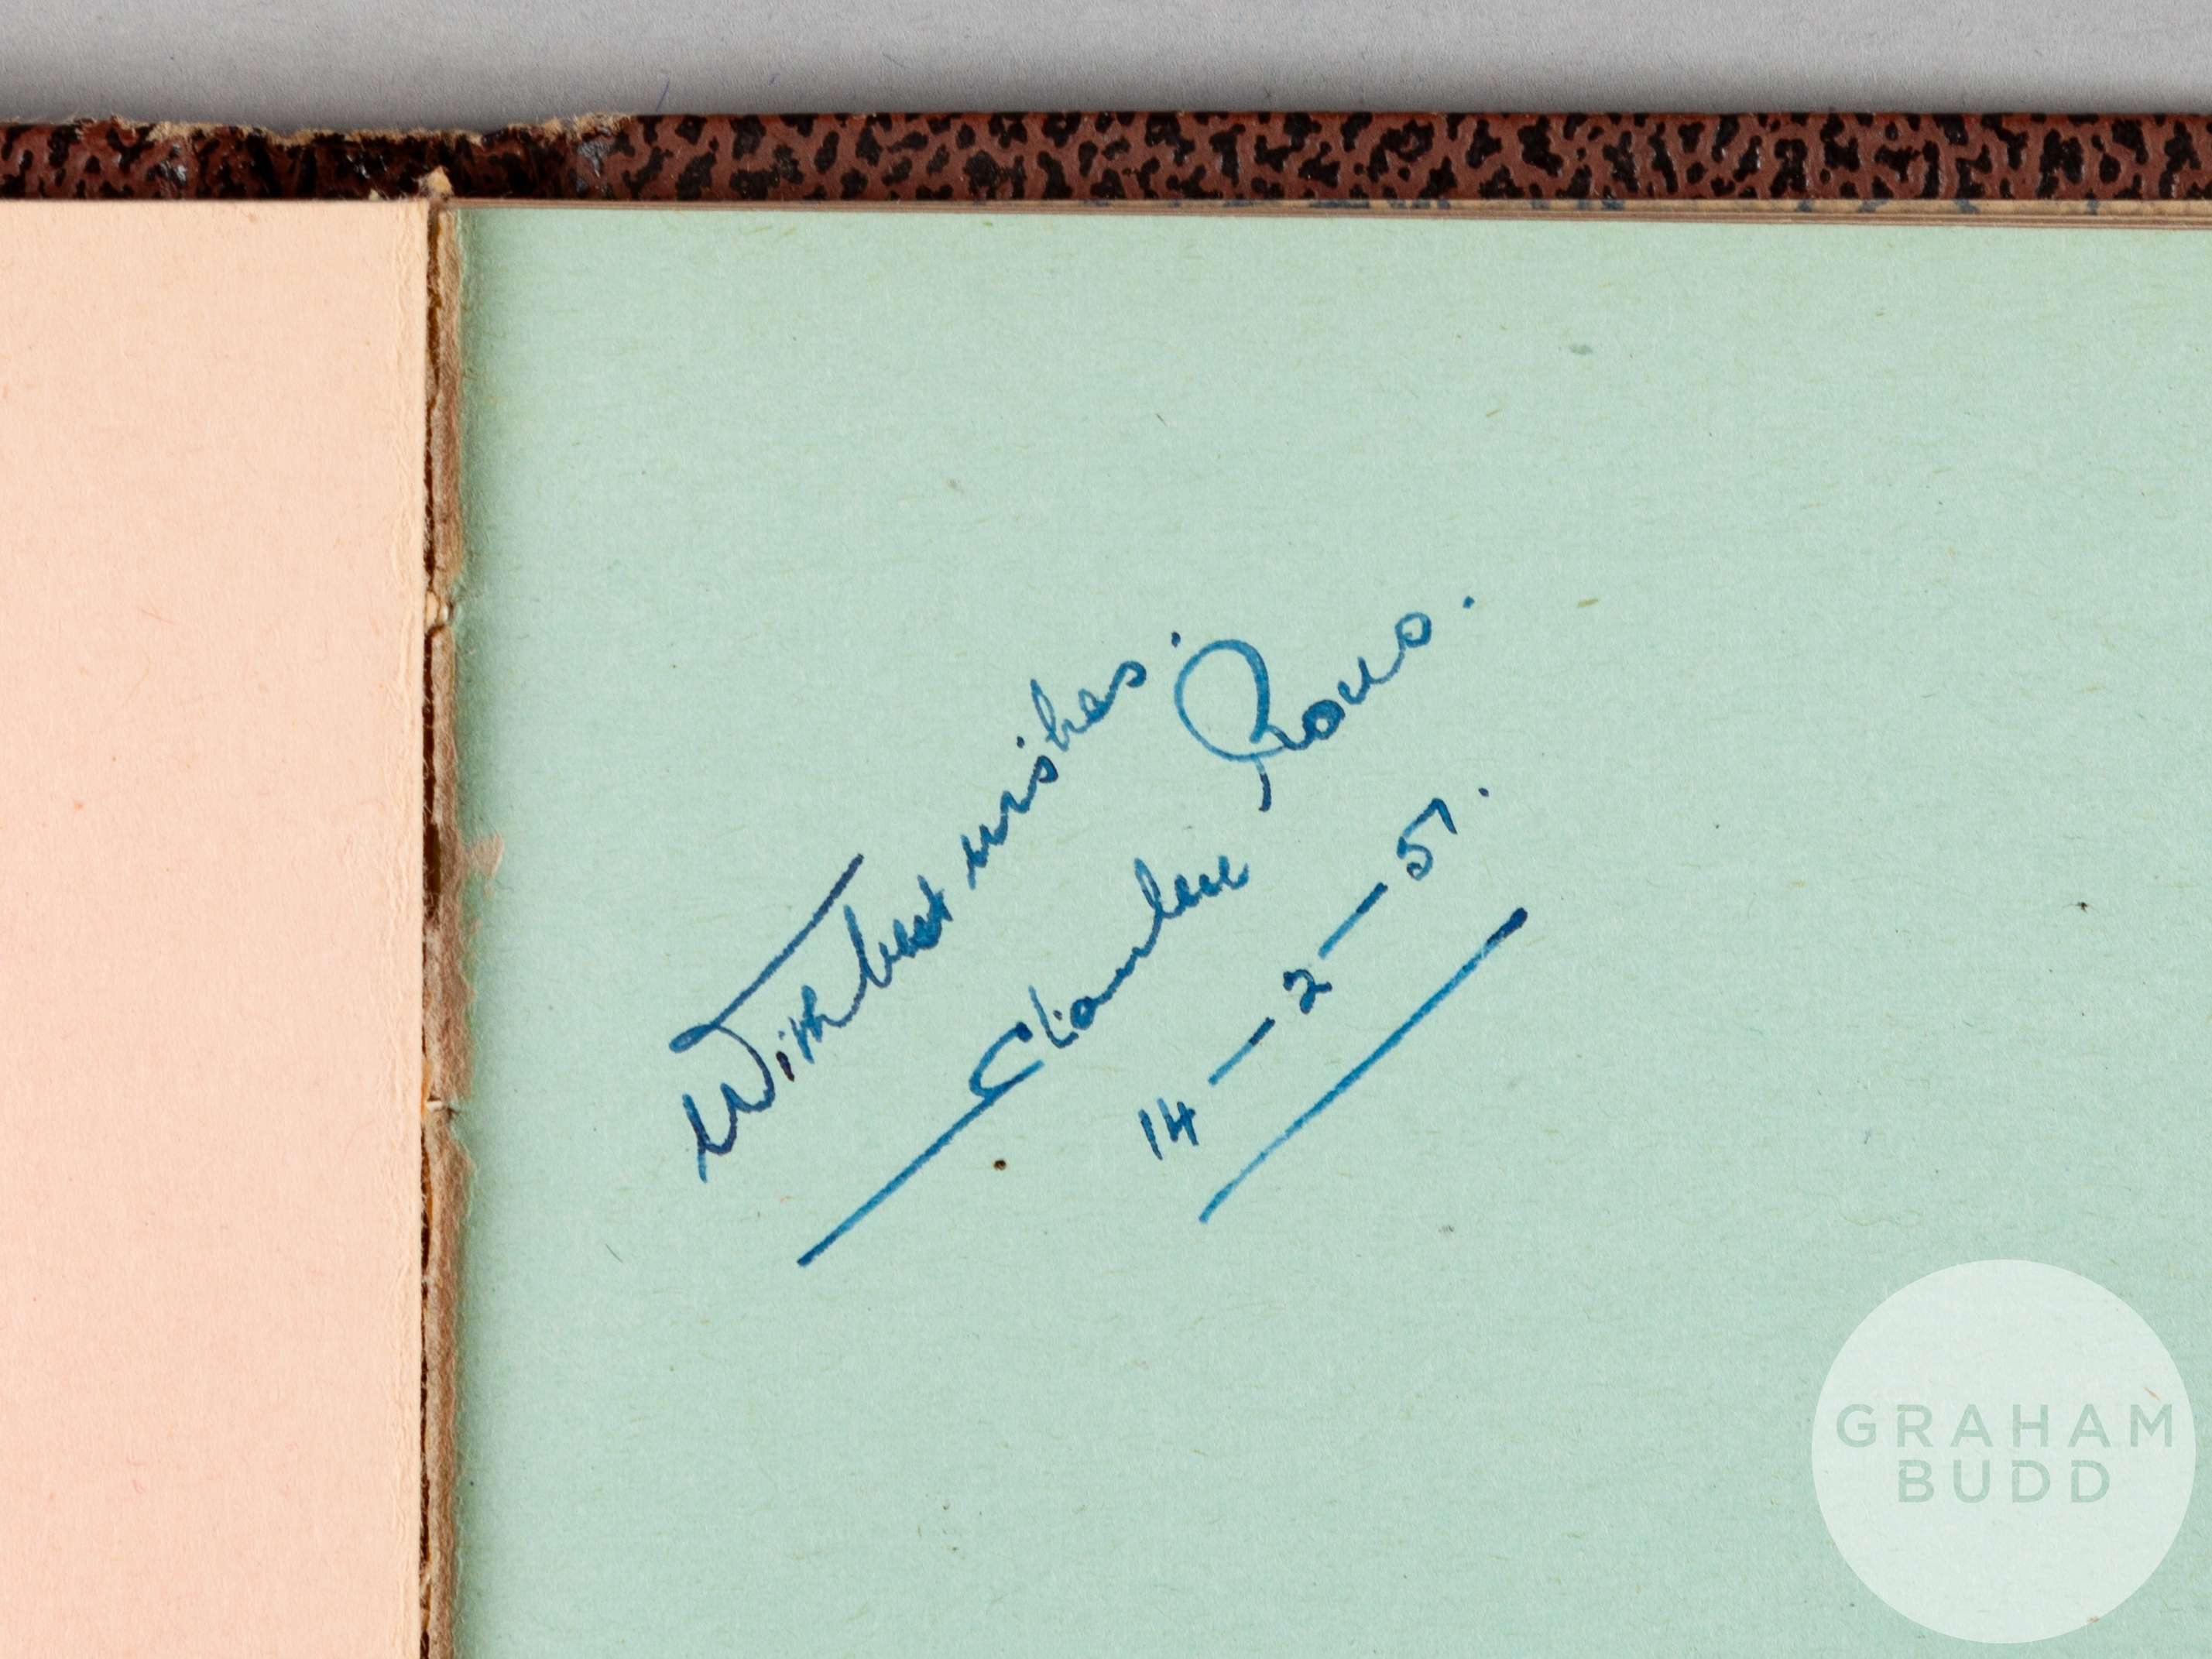 With best wishes.
Stanley Rous.
14 — 2 — 51.
GRAHAM
BUDD